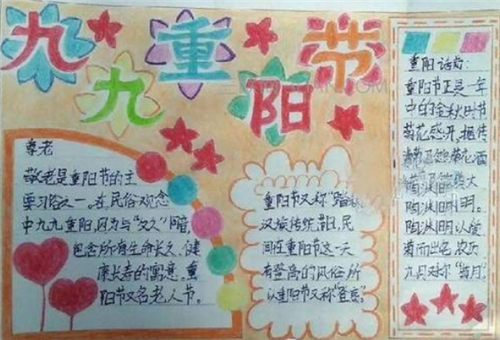 九九重阳节
尊老
敬老是重阳节的主
学习俗之一,在民俗观念
中九九重阳,因为与"久久"同音,
包含所有生命长久、健
康长寿的寓意,重
阳节又名老人节。
重阳节又称"踏秋
汉族传统节日,民
间在重阳节这一天
有登高的风俗所
以重阳节又称"登高"。
重阳
重阳节正是一年
中的金秋时节
菊花盛开,据传
陶渊明
陶渊明
菊而出名,农历
九月又称"菊月"